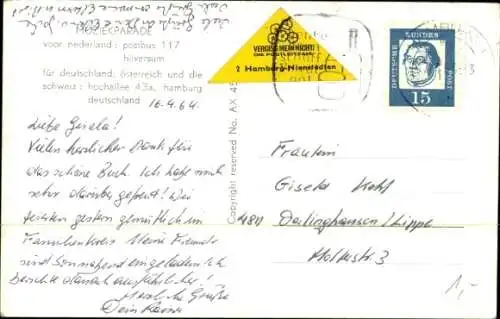 MUZIEKPARADE
voor nederland: postbus 117
hilversum
für deutschland, österreich und die
schweiz: hochallee 43a, hamburg
deutschland
16.4.64.
Liebe Gisela!
Vielen herzlichen Dank für
das schöne Buch. Ich habe mich
sehr darüber gefreut! Wir
feierten gestern gemütlich im
Familienkreis. Meine Freunde
sind Sonnabend eingeladen. Ich
berichte danach ausführlicher!
Herzliche Grüße
Dein Rainer
Copyright reserved No. AX
VERGISSMEINNICHT
DIE POSTLEITZAHL
2 Hamburg-Nienstedten
DEUTSCHE BUNDESPOST
15
Fräulein
Gisela Kohl
4811 Oerlinghausen/Lippe
Moltkestr. 3
1,-